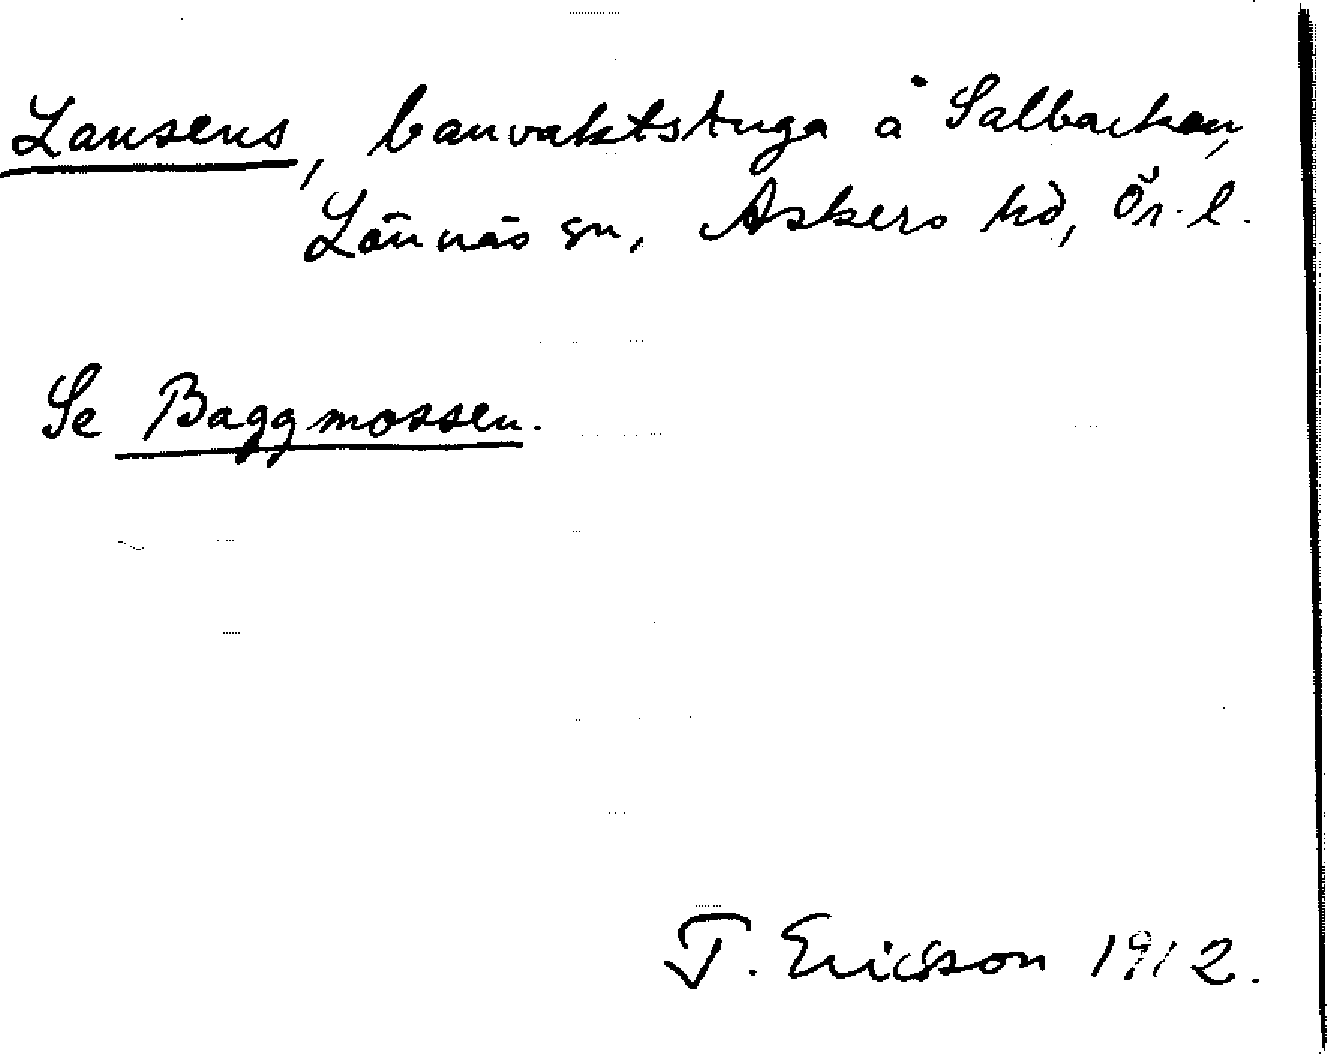 Lansens, banvaktstuga å Salbacken,
Lännäs sn, Askers hd, Ör. l.
Se Baggmossen.
T. Ericsson 1912.